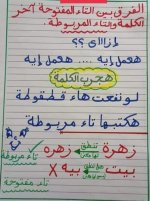 الفرق بين التاء المفتوحة آخر
الكلمة والتاء المربوطة.
إزاااي ؟؟
هعمل إيه .... هعمل إيه
هجرب الكلمة
لو نفعت هاء قطقوطة
هكتبها تاء مربوطة
زهرة زهره
تاء مربوطة
بيت بيه X
تاء مفتوحة